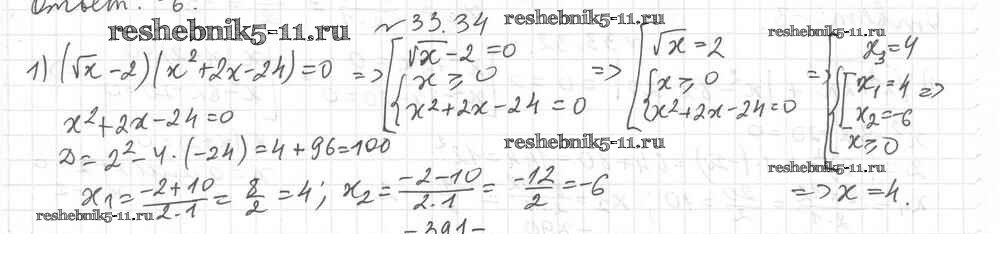 Ответ: -6.
reshebnik5-11.ru № 33.34 reshebnik5-11.ru reshebnik5-11.ru
1) (√x - 2)(x² + 2x - 24) = 0 => [√x - 2 = 0 {x ≥ 0 x² + 2x - 24 = 0 => [√x = 2 {x ≥ 0 x² + 2x - 24 = 0 => [x₃ = 4 {[x₁ = 4 x₂ = -6 x ≥ 0 =>
x² + 2x - 24 = 0
D = 2² - 4 · (-24) = 4 + 96 = 100 reshebnik5-11.ru reshebnik5-11.ru
x₁ = (-2+10)/(2·1) = 8/2 = 4; x₂ = (-2-10)/(2·1) = -12/2 = -6 => x = 4.
reshebnik5-11.ru
- 391 -